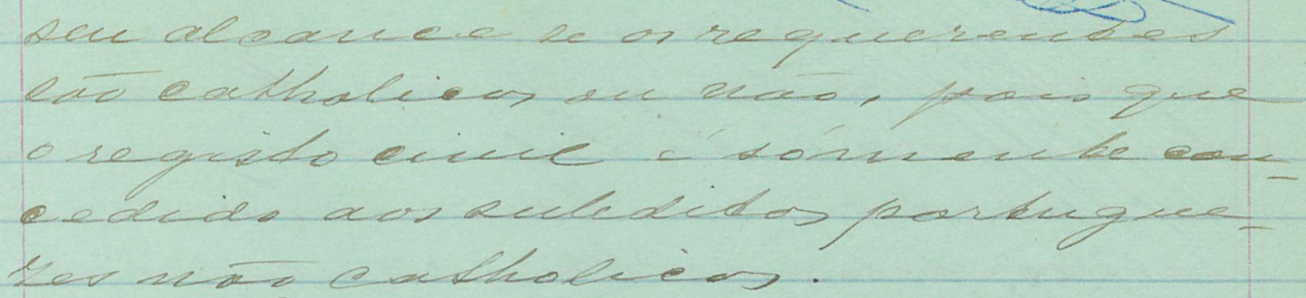 seu alcance se os requerentes
são catholicos ou não, pois que
o registo civil é sómente con-
cedido aos subditos portugue-
zes não catholicos.